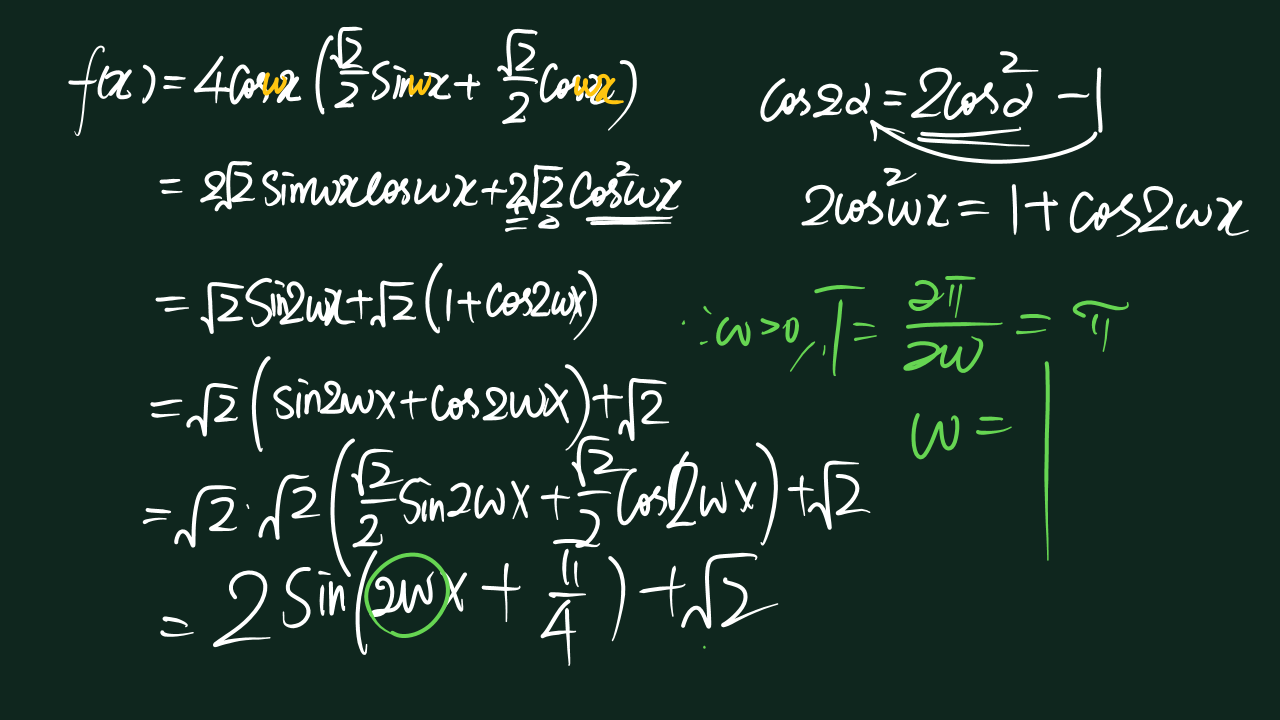 f(x) = 4cosωx(√2/2 sinωx + √2/2 cosωx)
= 2√2 sinωxcosωx + 2√2 cos²ωx
= √2 sin2ωx + √2(1 + cos2ωx)
= √2(sin2ωx + cos2ωx) + √2
= √2 · √2(√2/2 sin2ωx + √2/2 cos2ωx) + √2
= 2sin(2ωx + π/4) + √2
cos2α = 2cos²α − 1
2cos²ωx = 1 + cos2ωx
∵ω>0, T = 2π/2ω = π
ω = 1